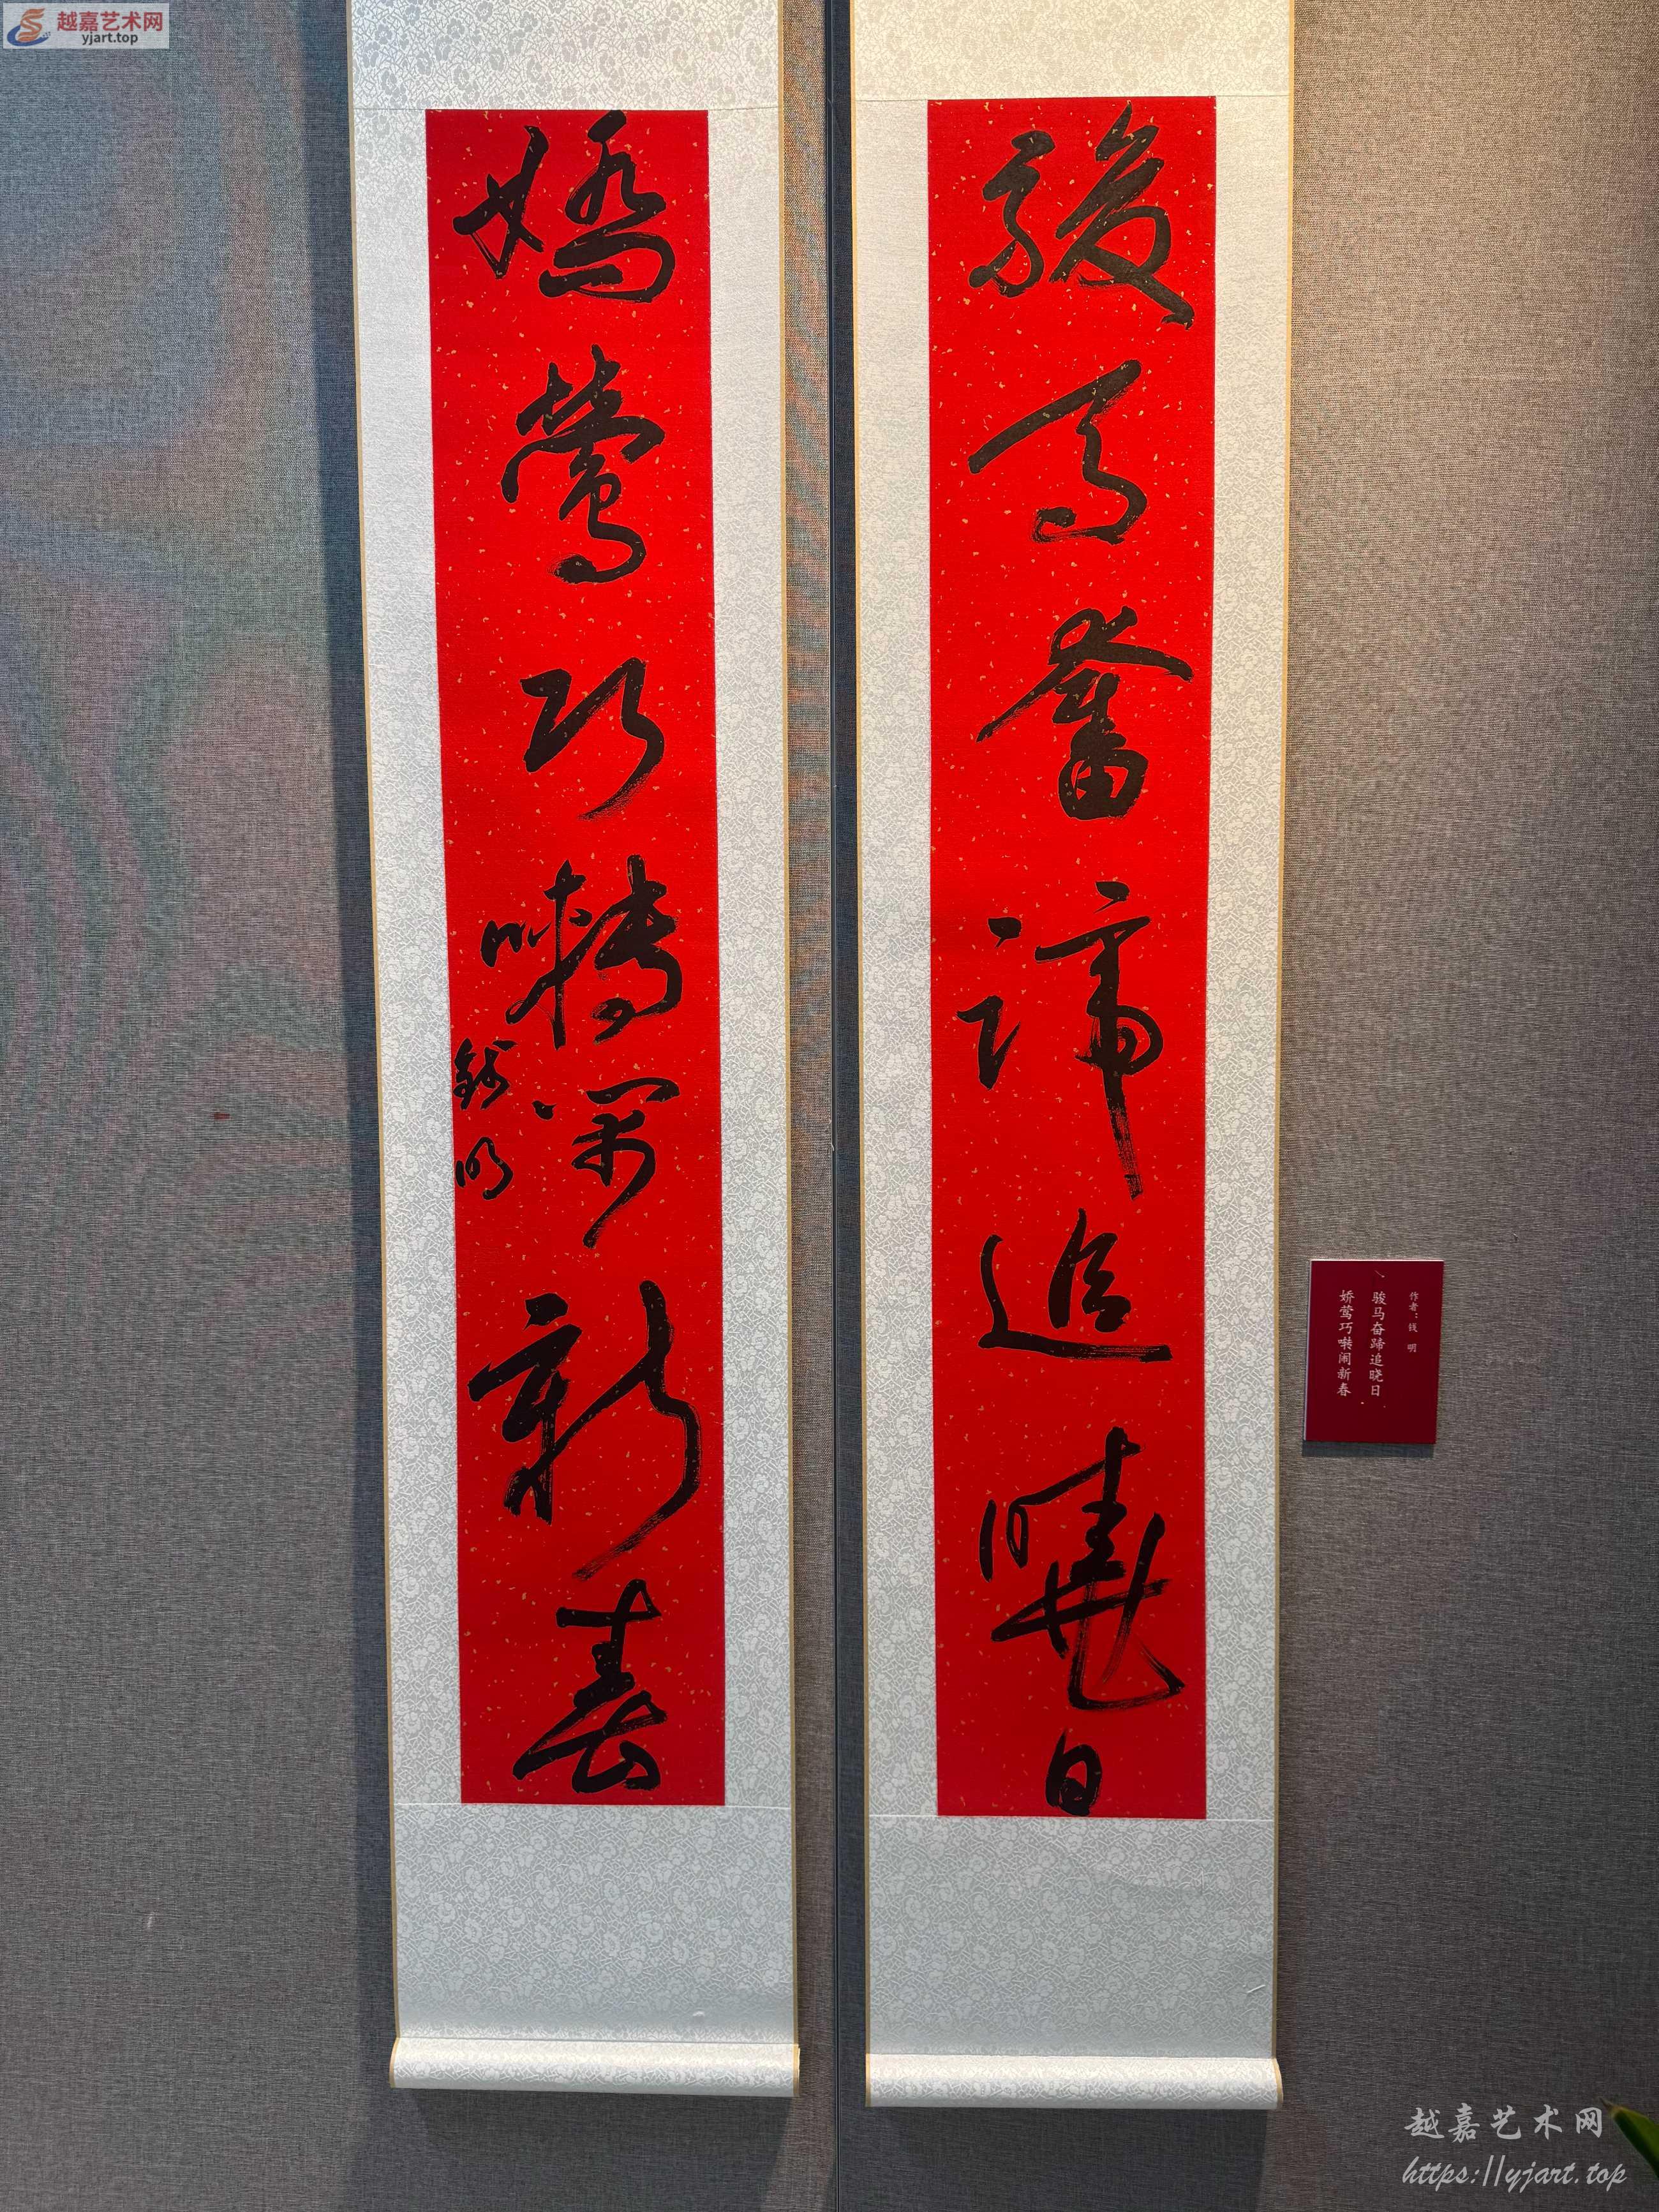 越嘉艺术网
yjart.top
駿馬奮蹄追曉日
嬌鶯巧囀鬧新春
錢明
作者：钱 明
骏马奋蹄追晓日
娇莺巧啭闹新春
越嘉艺术网
https://yjart.top